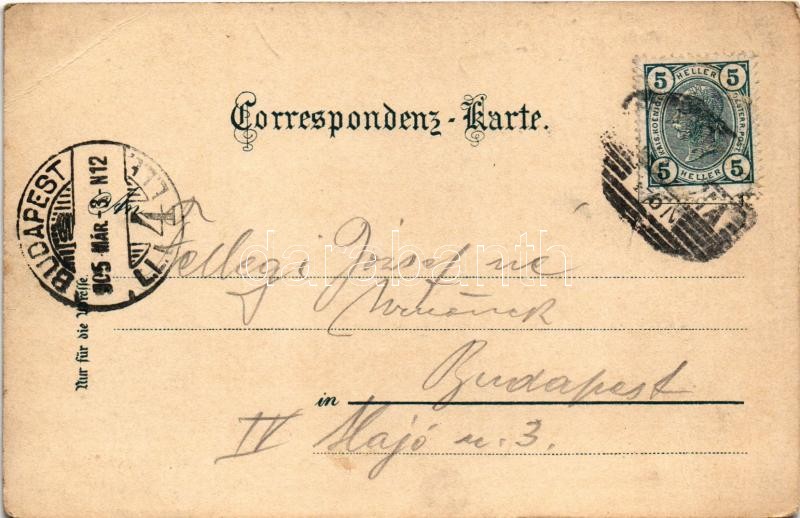 Correspondenz-Karte.
5 HELLER 5
KAIS. KOENIGL. OESTERR. POST
5 HELLER 5
BUDAPEST
905 MÁR. -3. N12
4
An
Tellegi József né
Budapest
in
IV Hajó u. 3.
Nur für die Adresse.
darabanth